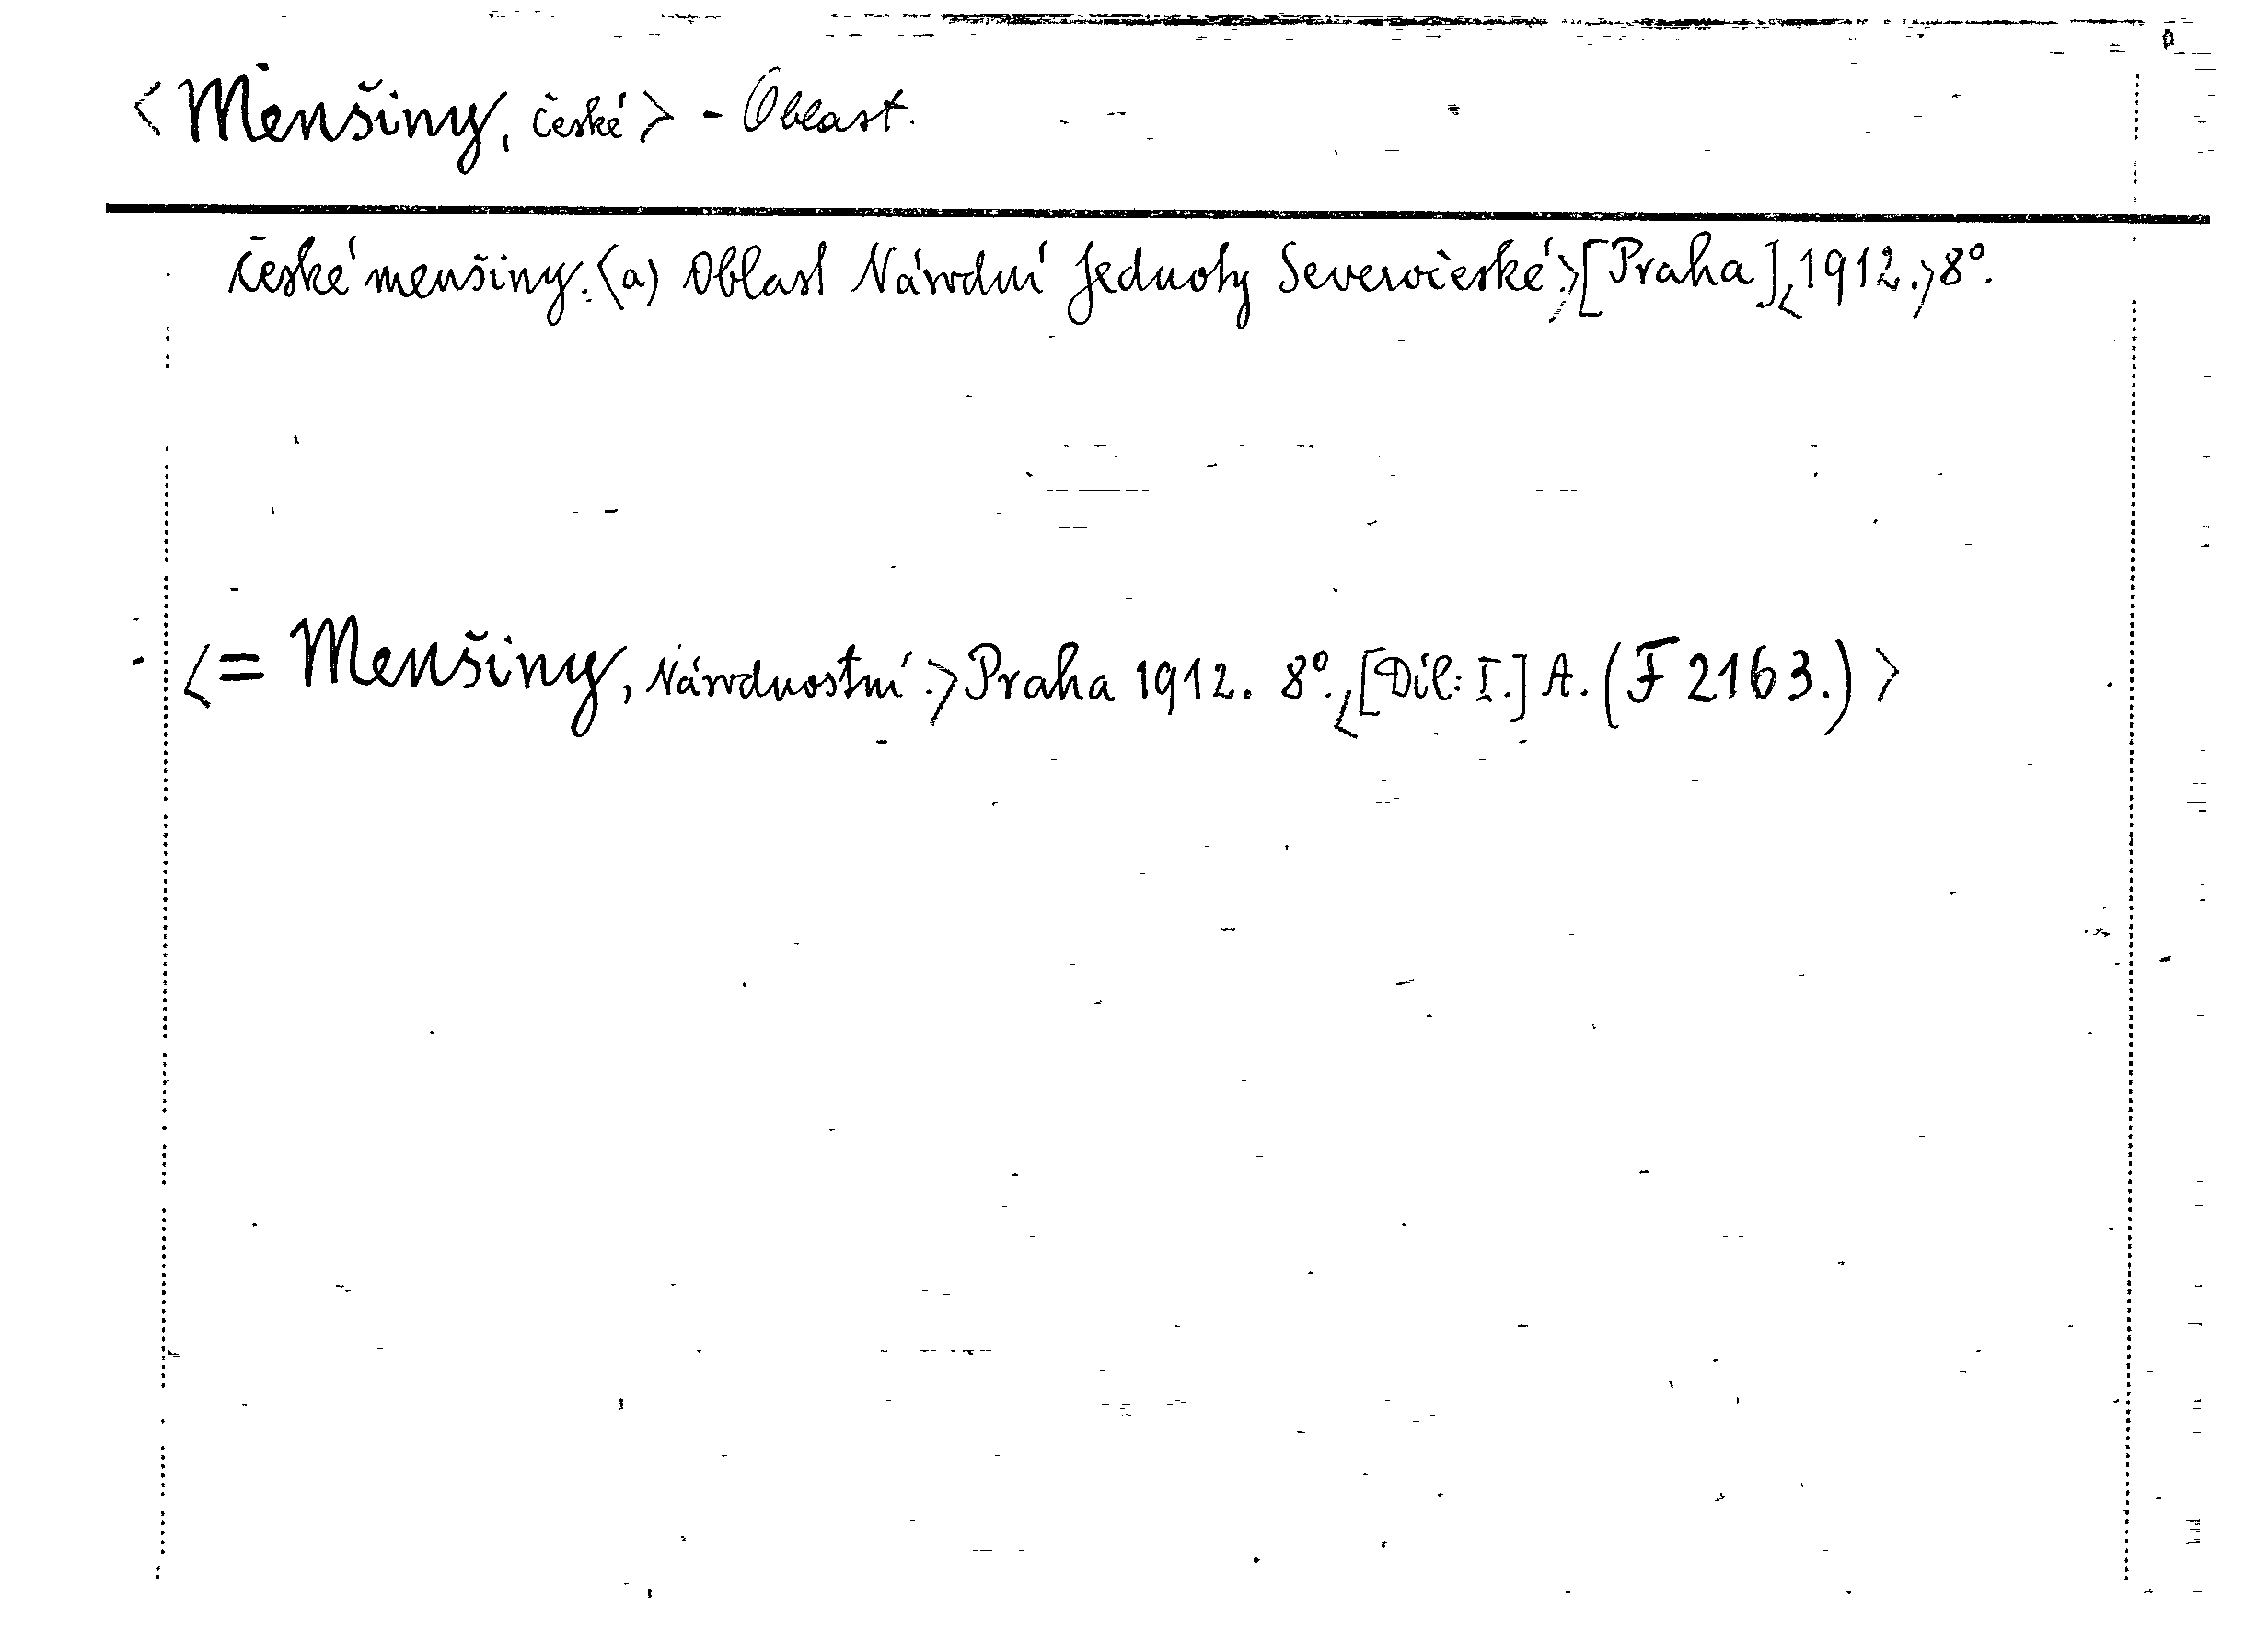 <Menšiny, české> - Oblast.
České menšiny. (a) Oblast Národní Jednoty Severočeské.>[Praha]<1912.>8°.
<= Menšiny, Národnostní.>Praha 1912. 8°.<[Díl: I.] A. (F 2163.)>